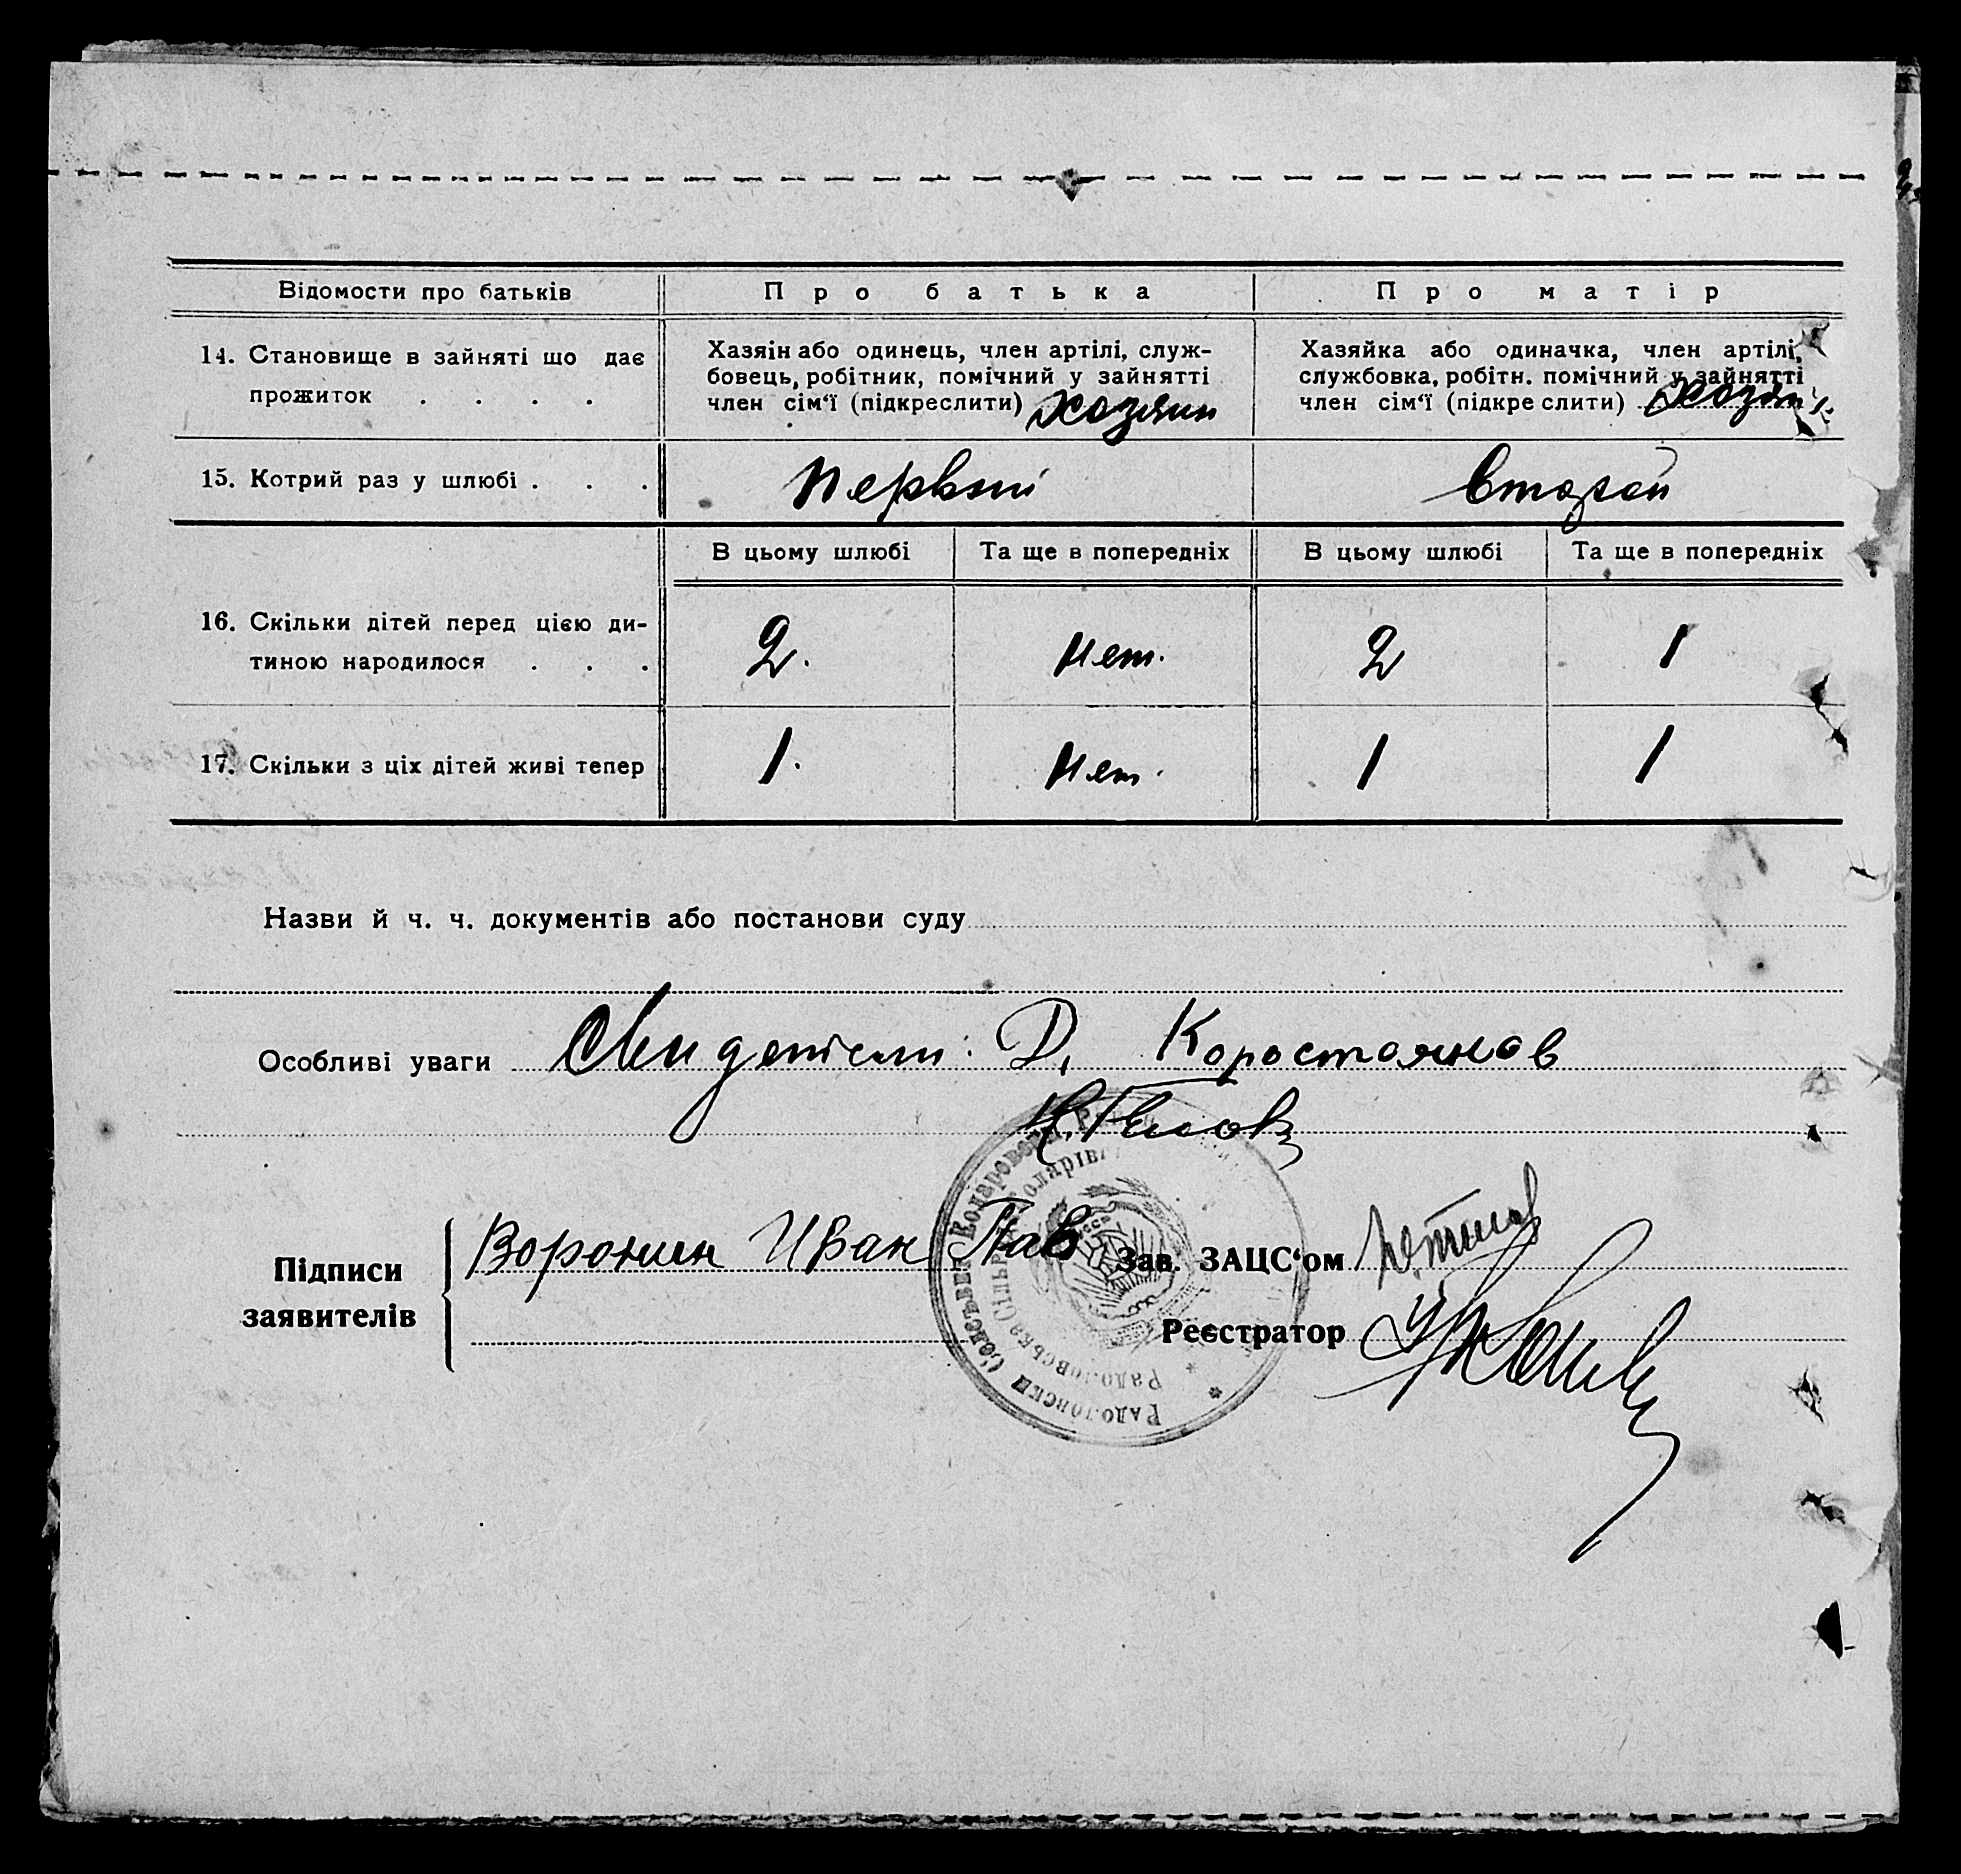 Відомости про батьків Про батька Про матір
14. Становище в зайняті що дає прожиток . . . .
Хазяін або одинець, член артілі, служ-
бовець, робітник, помічний у зайнятті
член сім‘ї (підкреслити) Хозяин
Хазяйка або одиначка, член артілі,
службовка, робітн. помічний у зайнятті
член сім‘ї (підкреслити)
15. Котрий раз у шлюбі . . . Первый Второй
В цьому шлюбі Та ще в попередніх В цьому шлюбі Та ще в попередніх
16. Скільки дітей перед цією ди-
тиною народилося . . . 2. Нет. 2 1
17. Скільки з ціх дітей живі тепер 1. Нет. 1 1
Назви й ч. ч. документів або постанови суду
Особливі уваги Свидетели: Д. Коростоянов
Підписи
заявителів
Воронин Иван Пав
Зав. ЗАЦС‘ом
Реєстратор